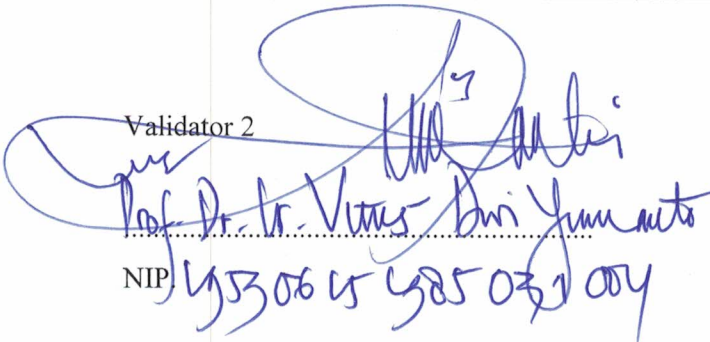 Validator 2
Prof. Dr. Ir. Vitus Dwi Yunianto
NIP. 19530615 198503 1 004